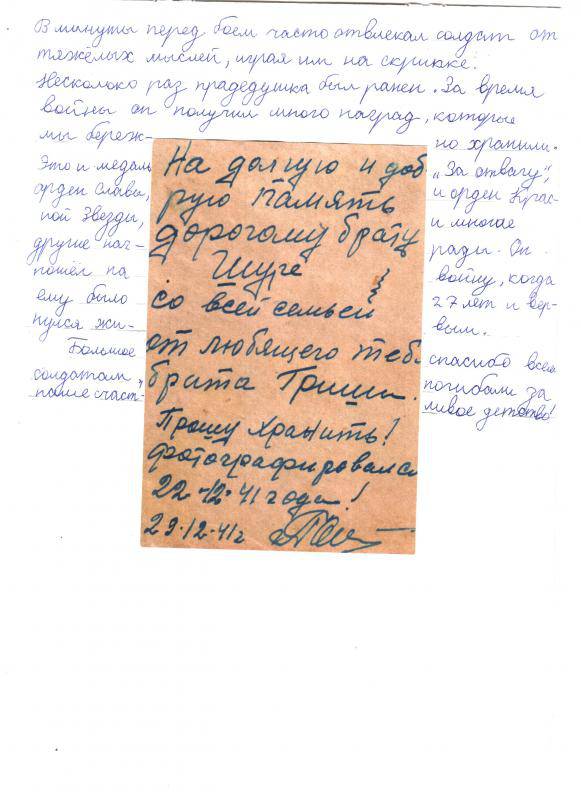 В минуты перед боем часто отвлекал солдат от
тяжёлых мыслей, играя им на скрипке.
Несколько раз прадедушка был ранен. За время
войны он получил много наград, которые
мы береж- но хранили.
Это и медаль „За отвагу",
орден Славы, и орден Крас-
ной Звезды, и многие
другие наг- рады. Он
пошёл на войну, когда
ему было 27 лет и вер-
нулся жи- вым.
Большое спасибо всем
солдатам, погибали за
наше счаст- ливое детство!
На долгую и доб
рую память
дорогому брату
Шуре
со всей семьей
от любящего теб
брата Гриши.
Прошу хранить!
Фотографировался
22-12-41 года!
29-12-41г